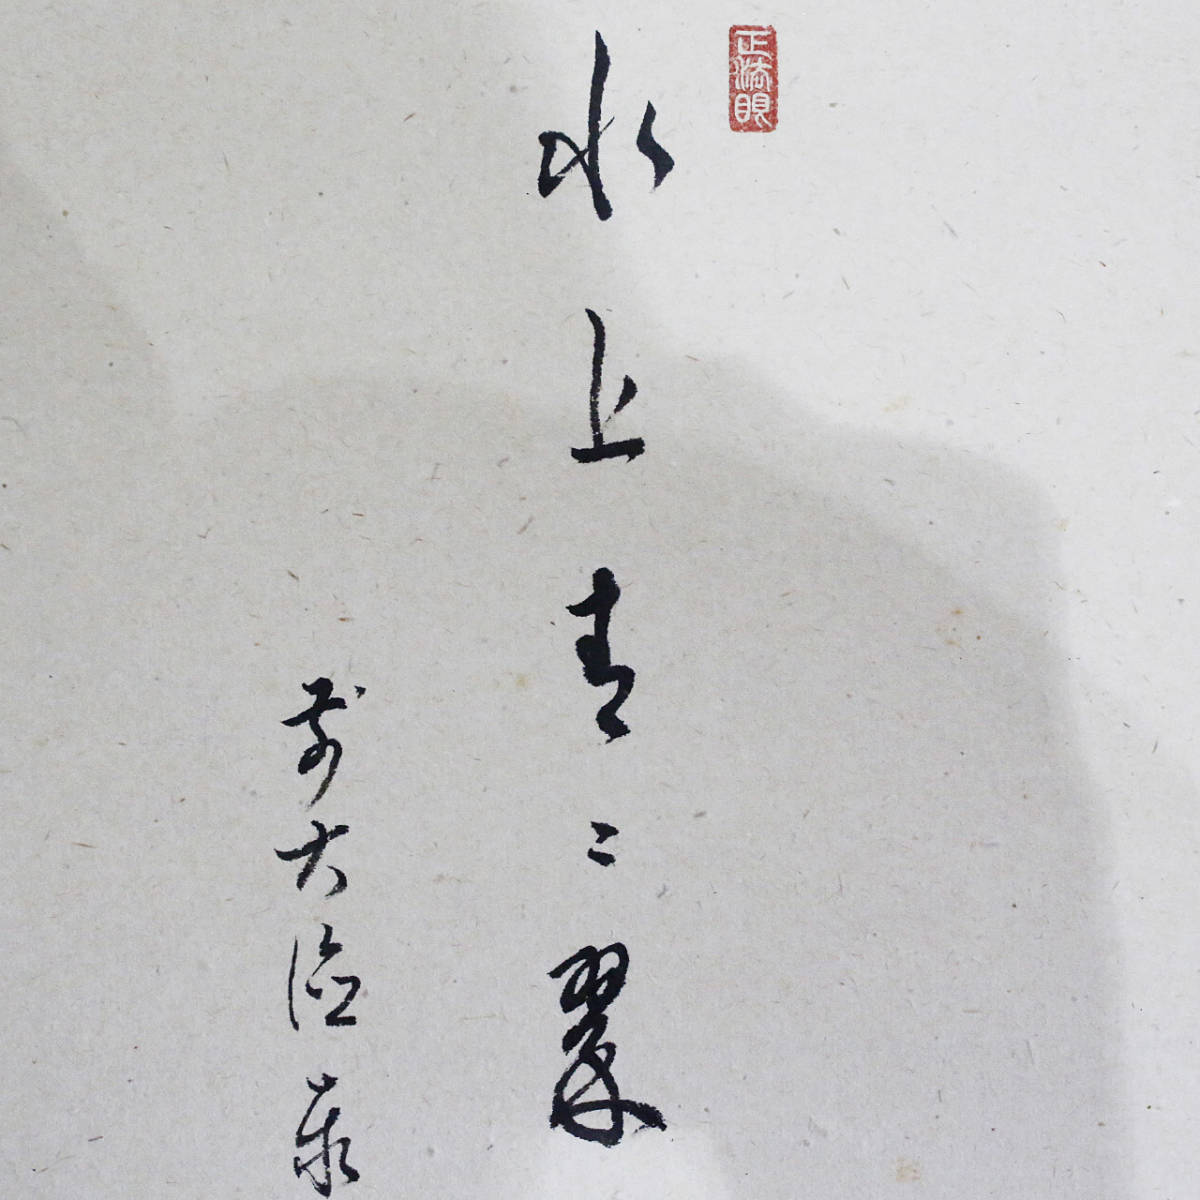 正法眼
水上青〻翠
前大徳